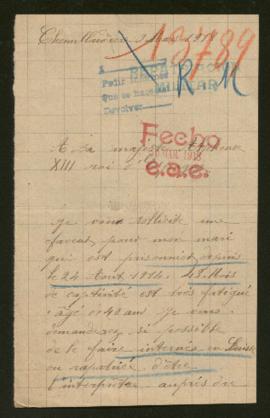 18789
R. M
Pedir
Devolver
Fecho
MAR 1918
e.a.e.
A Sa majesté Alphonse
XIII roi d'
Je vous sollicite une
faveur pour mon mari
qui est prisonnier depuis
le 24 Août 1914. 43 Mois
de captivité est très fatigué
âgé de 40 ans je vous
demanderez si possible
de le faire interner en Suisse
ou rapatrié d'être
l'interprète auprès du